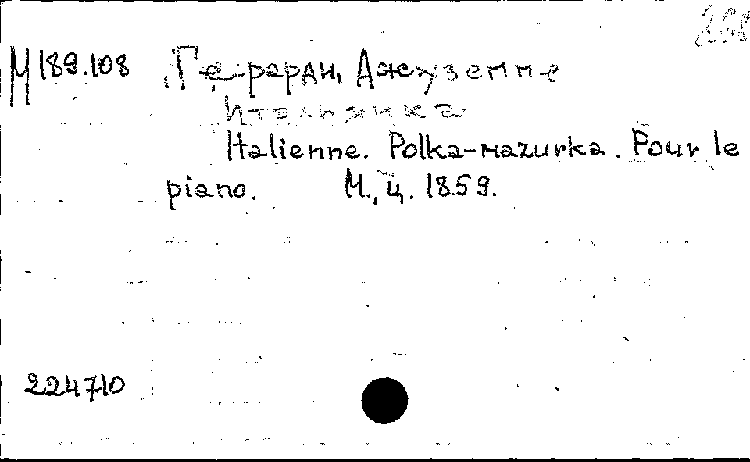 М 189.108 Герарди, Джузеппе
Итальянка
Italienne. Polka-mazurka. Pour le
piano. М., ц. 1859.
224710